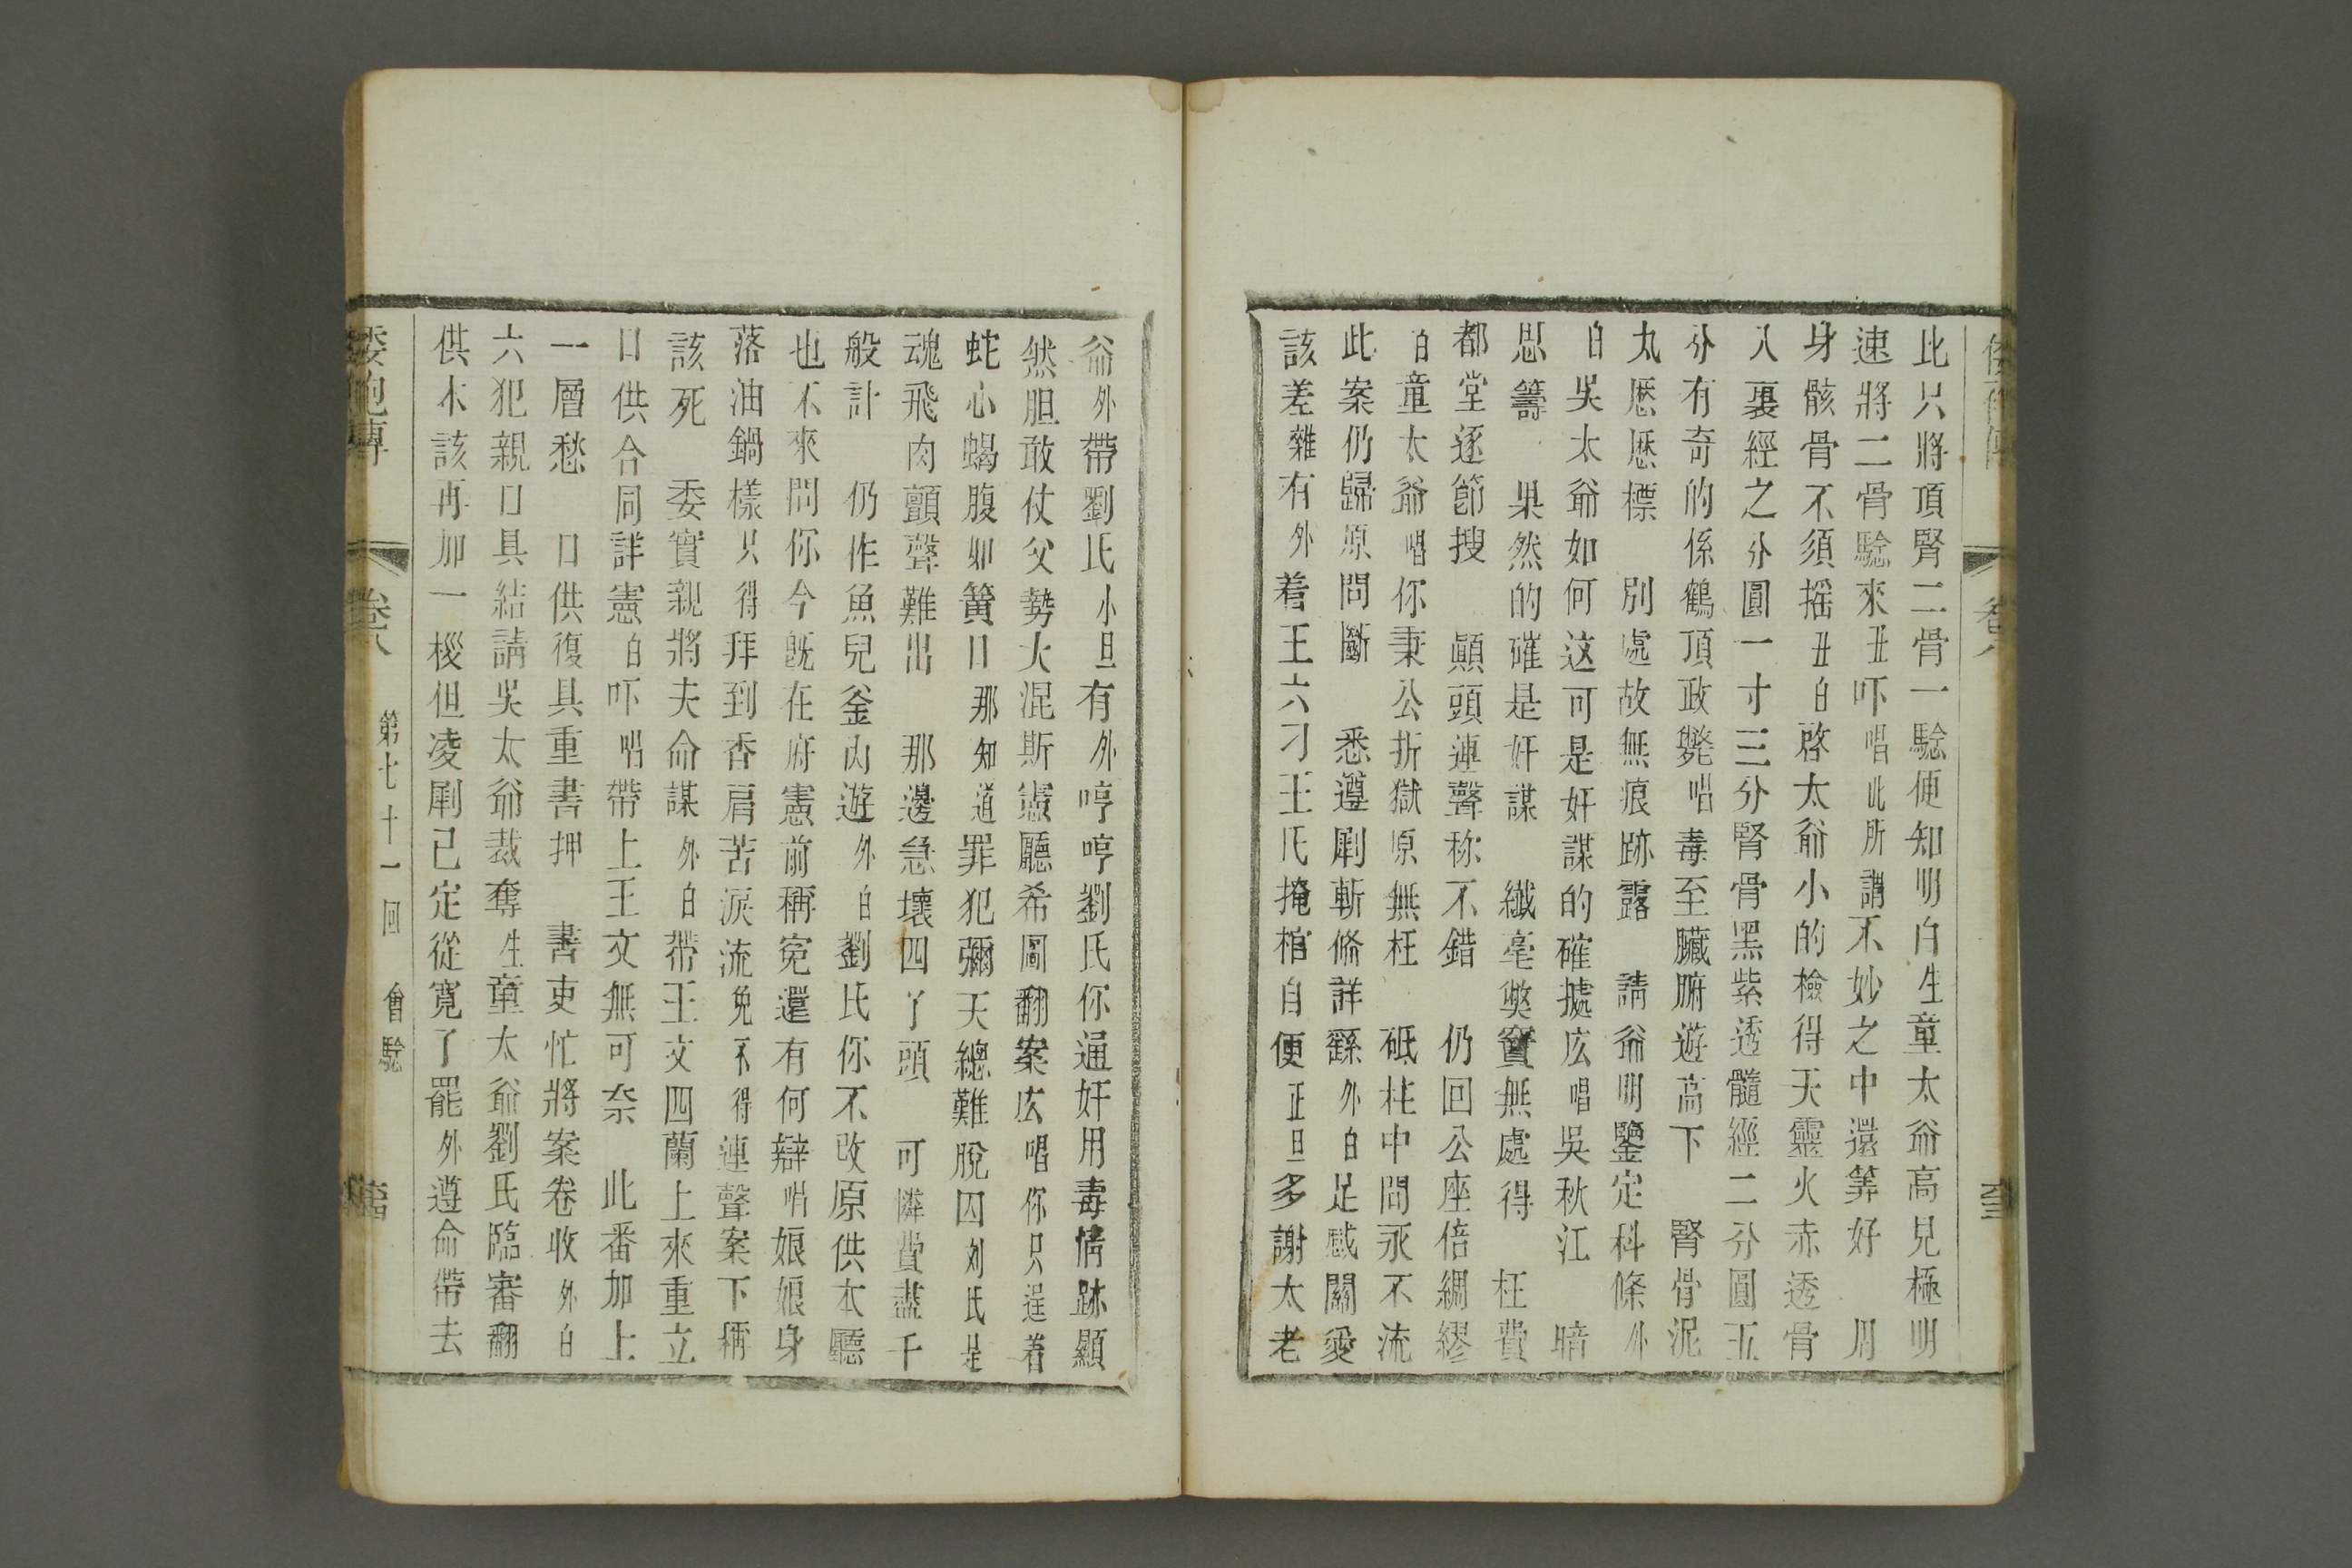 比只將頂腎二骨一騐便知明白生童太爺高見極明
速將二骨騐來丑吓唱此所謂不妙之中還筭好 周
身骸骨不須摇丑白啓太爺小的檢得天靈火赤透骨
入裏經之分圓一寸三分腎骨黑紫透髓經二分圓五
分有奇的係鶴頂政斃唱毒至臟腑遊高下 腎骨泥
丸厯厯標 別處故無痕跡露 請爺明鑒定科條外
白吳太爺如何这可是奸謀的確據庅唱吳秋江 暗
思籌 果然的確是奸謀 纖毫獘竇無處得 枉費
都堂逐節搜 顚頭連聲称不錯 仍回公座倍綢繆
白童太爺唱你秉公折獄原無枉 砥柱中問永不流
此案仍歸原問斷 悉遵剧斬條詳繇外白足感關爱
該差雜有外着王六刁王氏掩棺自便正旦多謝太老
爺外帶劉氏小旦有外哼哼劉氏你通奸用毒情跡顯
然胆敢仗父勢大混斯憲廳希圖翻案庅唱你只逞着
蛇心蝎腹如簧口那知道罪犯彌天總難脫囚刘氏是
魂飛肉顫聲難出 那邊急壞四丫頭 可憐費盡千
般計 仍作魚兒釜內遊外白劉氏你不改原供本廳
也不來問你今旣在府憲前稱寃還有何辯唱娘娘身
落油鍋樣只得拜到香肩苦淚流免不得連聲案下稱
該死 委實親將夫命謀外白帶王文四蘭上來重立
口供合同詳憲白吓唱帶上王文無可奈 此番加上
一層愁 口供復具重書押 書吏忙將案卷收外白
六犯親口具結請吳太爺裁奪生童太爺劉氏臨審翻
供本該再加一桚但凌剧已定從寛了罷外遵命帶去
倭袍傳 卷八 第七十一回 會騐